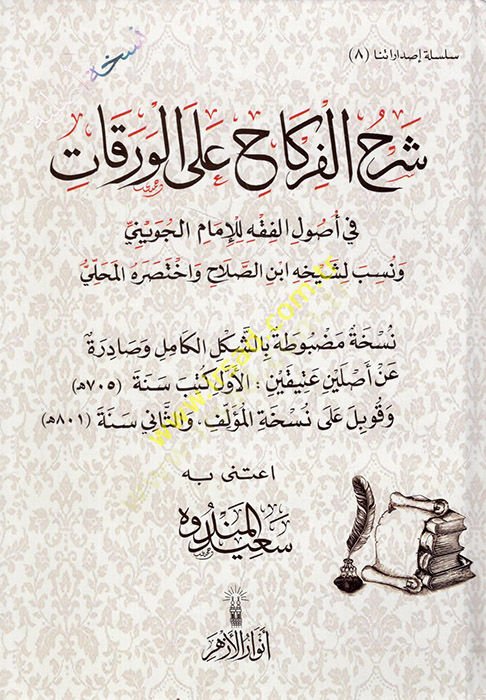 سلسلة إصداراتنا (٨)
نسخة
شَرْحُ الفِرْكَاحِ عَلَى الوَرَقَاتِ
فِي أُصُولِ الفِقْهِ لِلْإِمَامِ الجُوَيْنِيِّ
وَنُسِبَ لِشَيْخِهِ ابْنِ الصَّلَاحِ وَاخْتَصَرَهُ المَحَلِّيُّ
نُسْخَةٌ مَضْبُوطَةٌ بِالشَّكْلِ الكَامِلِ وَصَادِرَةٌ
عَنْ أَصْلَيْنِ عَتِيقَيْنِ : الأَوَّلُ كُتِبَ سَنَةَ (٧٠٥هـ)
وَقُوبِلَ عَلَى نُسْخَةِ المُؤَلِّفِ ، وَالثَّانِي سَنَةَ (٨٠١هـ)
اعتنى به
سَعِيد المَنْدُوه
أَنْوَارُ الأَزْهَرِ